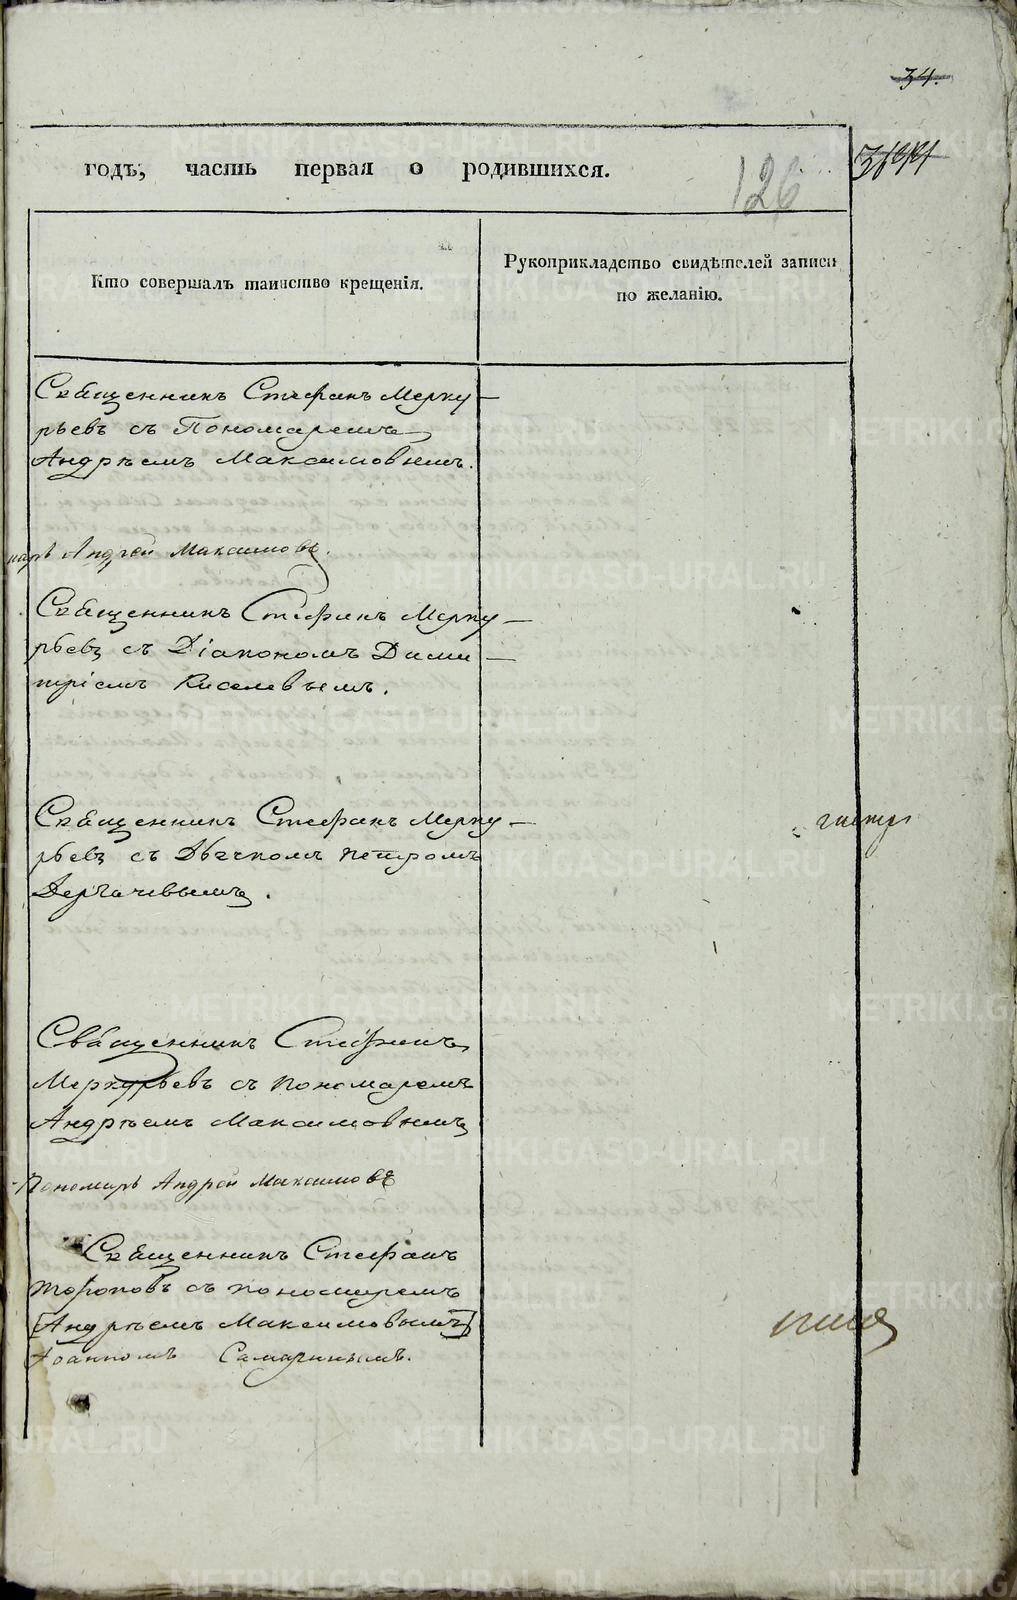 34.
годъ, часть первая о родившихся.
126
Кто совершалъ таинство крещенія.
Рукоприкладство свидѣтелей записи
по желанію.
Священникъ Стефанъ Мерку-
рьевъ съ Пономаремъ
Андрѣемъ Максимовымъ.
марь Андрей Максимовъ.
Священникъ Стефанъ Мерку-
рьевъ съ Діакономъ Дими-
тріемъ Киселевымъ.
Священникъ Стефанъ Мерку-
рьевъ съ Дьячкомъ Петромъ
Дергачевымъ.
Священникъ Стефанъ
Меркурьевъ съ пономаремъ
Андрѣемъ Максимовымъ
Пономарь Андрей Максимовъ
Священникъ Стефанъ
Топоровъ съ пономаремъ
[Андрѣемъ Максимовымъ]
Іоанномъ Самагинымъ.
METRIKI.GASO-URAL.RU